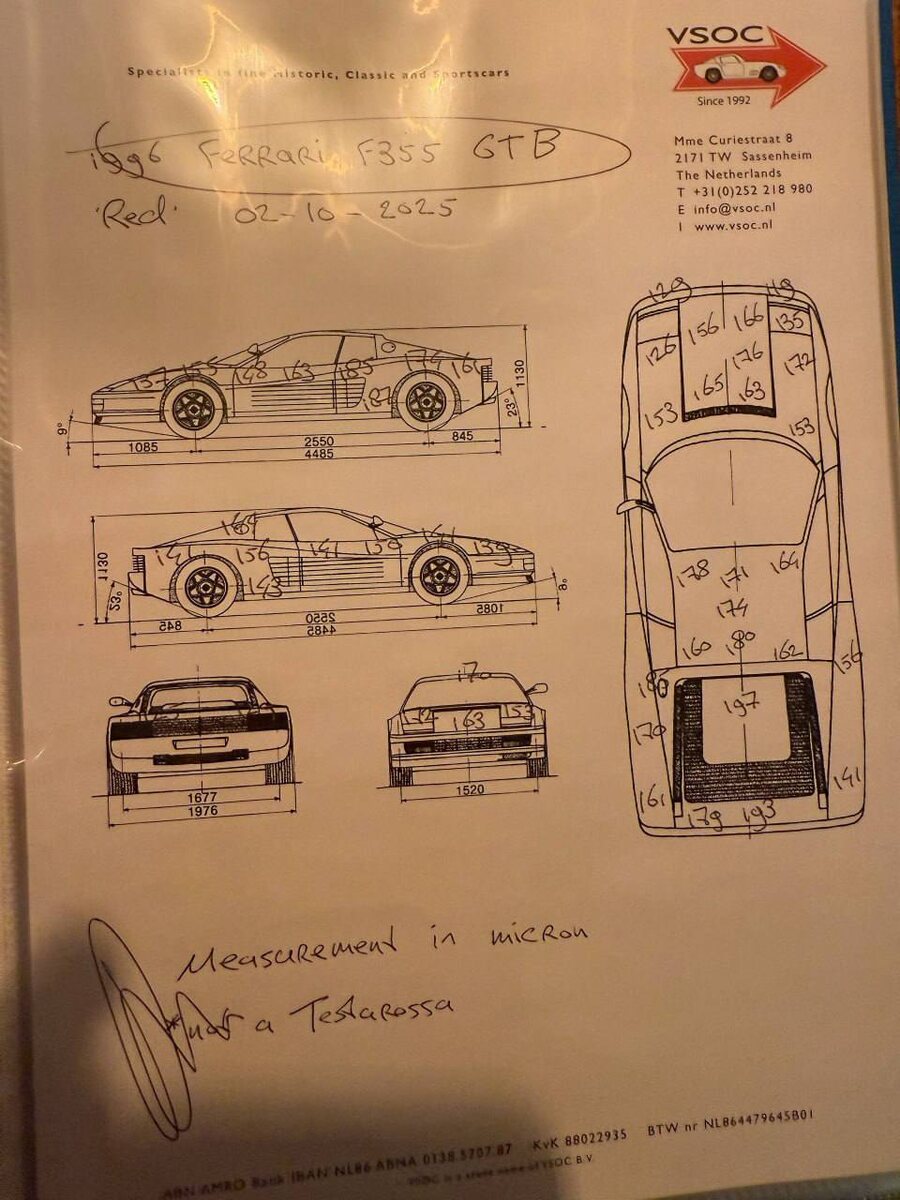 VSOC
Since 1992
Specialists in fine Historic, Classic and Sportscars
Mme Curiestraat 8
2171 TW Sassenheim
The Netherlands
T +31(0)252 218 980
E info@vsoc.nl
I www.vsoc.nl
1996 Ferrari F355 GTB
'Red' 02-10-2025
157 155 148 163 185 174 161
187
1130
9°
23°
1085 2550 845
4485
164
141 156 141 150 141 139
143
1130
23°
8°
845 2550 1085
4485
1677
1976
170
163 153
1520
129 119
156 166 135
126 176 172
165 163
153 153
178 171 164
174
160 180 162 156
197
170
161 141
179 193
Measurement in micron
*not a Testarossa
ABN AMRO Bank IBAN NL86 ABNA 0138 5707 87 KvK 88022935 BTW nr NL864479645B01
VSOC is a trade name of VSOC B.V.